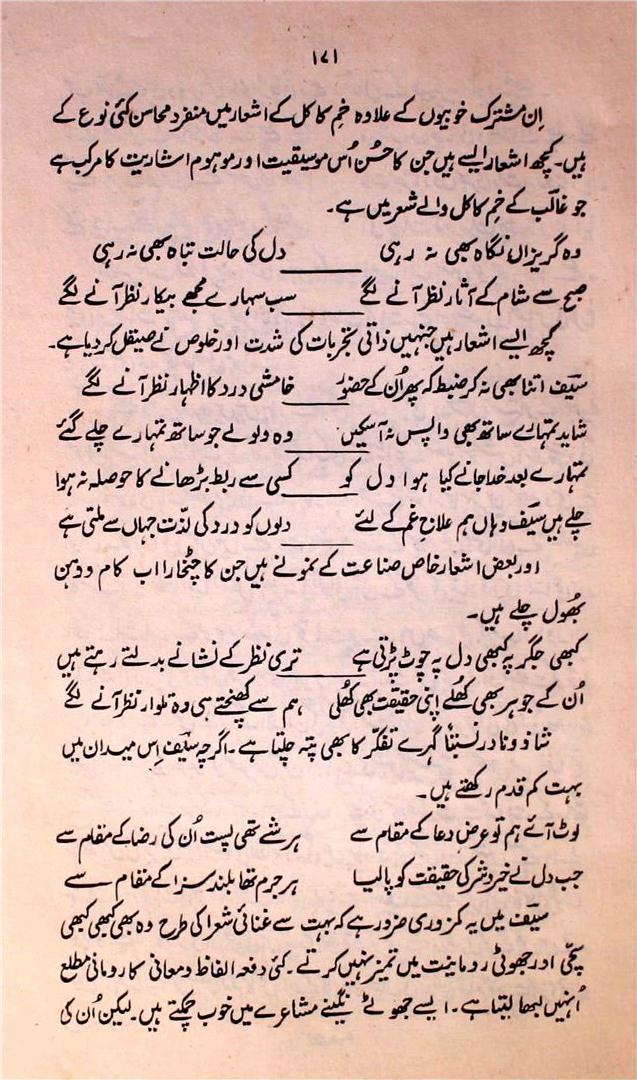 ۱۷۱
اِن مشترک خوبیوں کے علاوہ خمِ کاکل کے اشعار میں منفرد محاسن کئی نوع کے
ہیں۔ کچھ اشعار ایسے ہیں جن کا حُسن اُس موسیقیت اور موہوم اشاریت کا مرکب ہے
جو غالبؔ کے خمِ کاکل والے شعر میں ہے۔
وہ گریزاں نگاہ بھی نہ رہی دل کی حالت تباہ بھی نہ رہی
صبح سے شام کے آثار نظر آنے لگے سب سہارے مجھے بیکار نظر آنے لگے
کچھ ایسے اشعار ہیں جنہیں ذاتی تجربات کی شدت اور خلوص نے صیقل کر دیا ہے۔
سیفؔ اتنا بھی نہ کر ضبط کہ پھر اُن کے حضور خامشی درد کا اظہار نظر آنے لگے
شاید تمہارے ساتھ بھی واپس نہ آ سکیں وہ ولولے جو ساتھ تمہارے چلے گئے
تمہارے بعد خدا جانے کیا ہوا دل کو کسی سے ربط بڑھانے کا حوصلہ نہ ہوا
چلے ہیں سیفؔ وہاں ہم علاجِ غم کے لئے دلوں کو درد کی لذّت جہاں سے ملتی ہے
اور بعض اشعار خاص صناعت کے نمونے ہیں جن کا چٹخارا اب کام و دہن
بھُول چلے ہیں۔
کبھی جگر پہ کبھی دل پہ چوٹ پڑتی ہے تری نظر کے نشانے بدلتے رہتے ہیں
اُن کے جوہر بھی کھُلے اپنی حقیقت بھی کھُلی ہم سے کھنچتے ہی وہ تلوار نظر آنے لگے
شاذ و نادر نسبتاً گہرے تفکّر کا بھی پتہ چلتا ہے۔ اگرچہ سیفؔ اِس میدان میں
بہت کم قدم رکھتے ہیں۔
لوٹ آئے ہم تو عرضِ دعا کے مقام سے ہر شے تھی پست اُن کی رضا کے مقام سے
جب دل نے خیر و شر کی حقیقت کو پا لیا ہر جرم تھا بلند سزا کے مقام سے
سیفؔ میں یہ کمزوری ضرور ہے کہ بہت سے غنائی شعرا کی طرح وہ بھی کبھی کبھی
سچّی اور جھوٹی رومانیت میں تمیز نہیں کرتے۔ کئی دفعہ الفاظ و معانی کا رومانی مطلع
اُنہیں لبھا لیتا ہے۔ ایسے جھوٹے نگینے مشاعرے میں خوب چمکتے ہیں۔ لیکن اُن کی